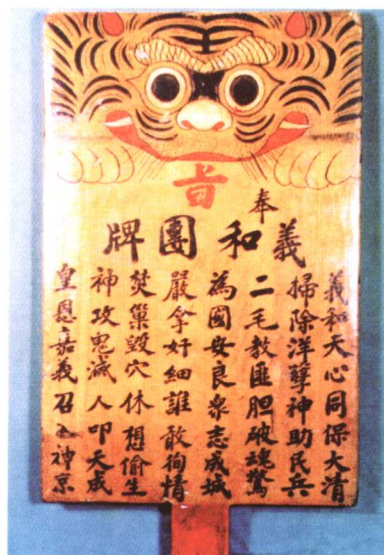 奉
旨
義和團牌
義和天心同保大清
掃除洋孽神助民兵
二毛教匪胆破魂驚
為國安良衆志成城
嚴拿奸細誰敢徇情
焚巢毀穴休想偷生
神攻鬼滅人叩天成
皇恩嘉義召入神京